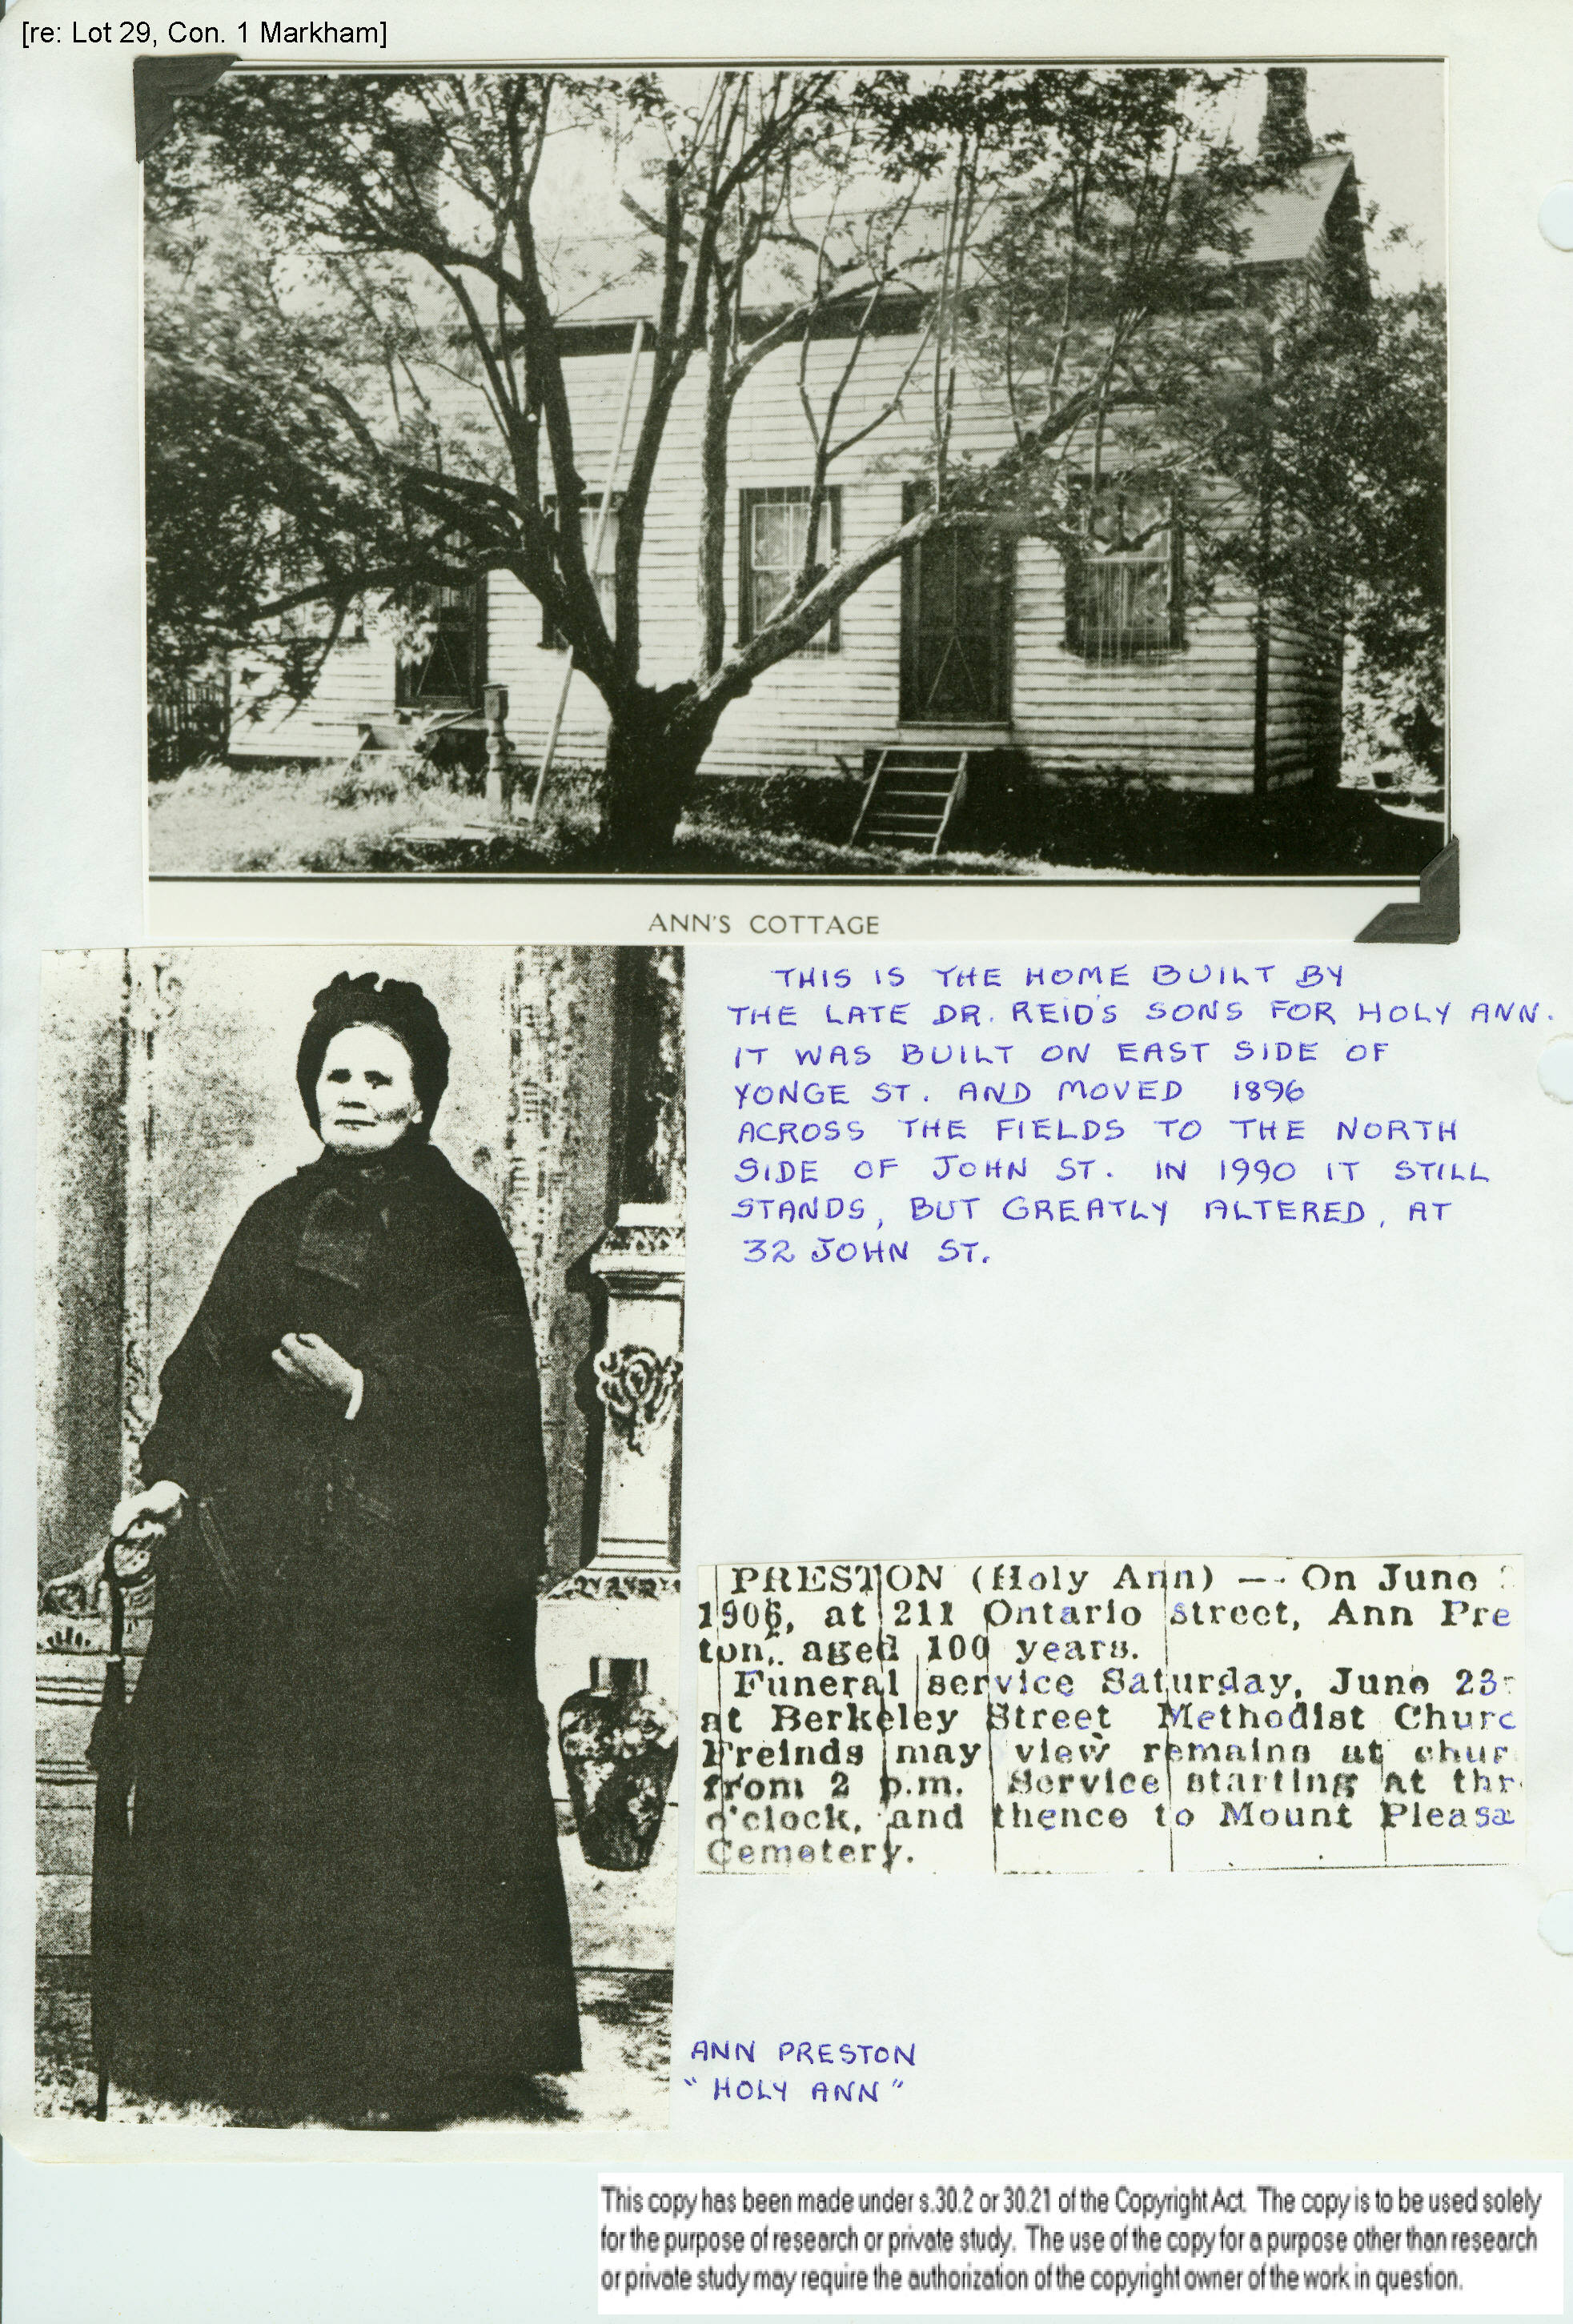 [re: Lot 29, Con. 1 Markham]
ANN'S COTTAGE
THIS IS THE HOME BUILT BY
THE LATE DR. REID'S SONS FOR HOLY ANN.
IT WAS BUILT ON EAST SIDE OF
YONGE ST. AND MOVED 1896
ACROSS THE FIELDS TO THE NORTH
SIDE OF JOHN ST. IN 1990 IT STILL
STANDS, BUT GREATLY ALTERED, AT
32 JOHN ST.
PRESTON (Holy Ann) — On June
1906, at 211 Ontario street, Ann Pre
ton, aged 100 years.
Funeral service Saturday, June 23
at Berkeley Street Methodist Churc
Freinds may view remains at chur
from 2 p.m. Service starting at thr
o'clock, and thence to Mount Pleasa
Cemetery.
ANN PRESTON
"HOLY ANN"
This copy has been made under s.30.2 or 30.21 of the Copyright Act. The copy is to be used solely
for the purpose of research or private study. The use of the copy for a purpose other than research
or private study may require the authorization of the copyright owner of the work in question.